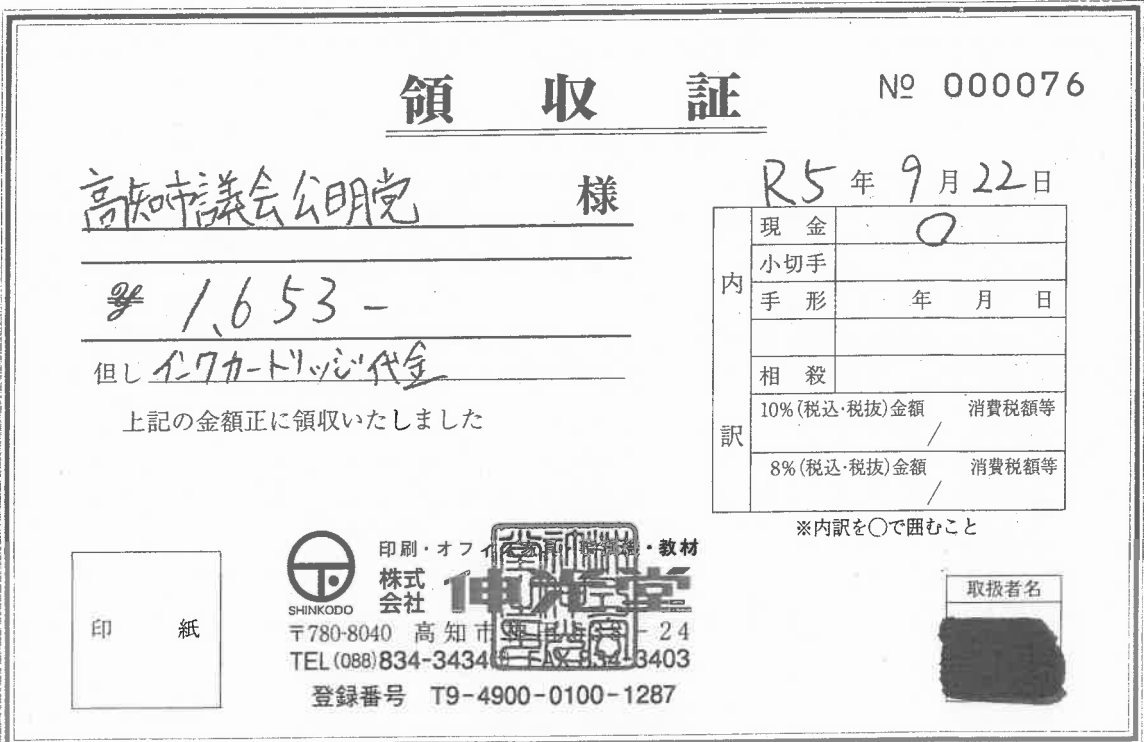 領収証
№ 000076
高知市議会公明党 様
R5年9月22日
¥ 1,653-
但し インクカートリッジ代金
上記の金額正に領収いたしました
内訳
現金 ○
小切手
手形 年 月 日
相殺
10%(税込・税抜)金額 / 消費税額等
8%(税込・税抜)金額 / 消費税額等
※内訳を○で囲むこと
印紙
SHINKODO
印刷・オフィス・教材
株式会社
〒780-8040 高知市 -24
TEL(088)834-3434 FAX 834-3403
登録番号 T9-4900-0100-1287
取扱者名